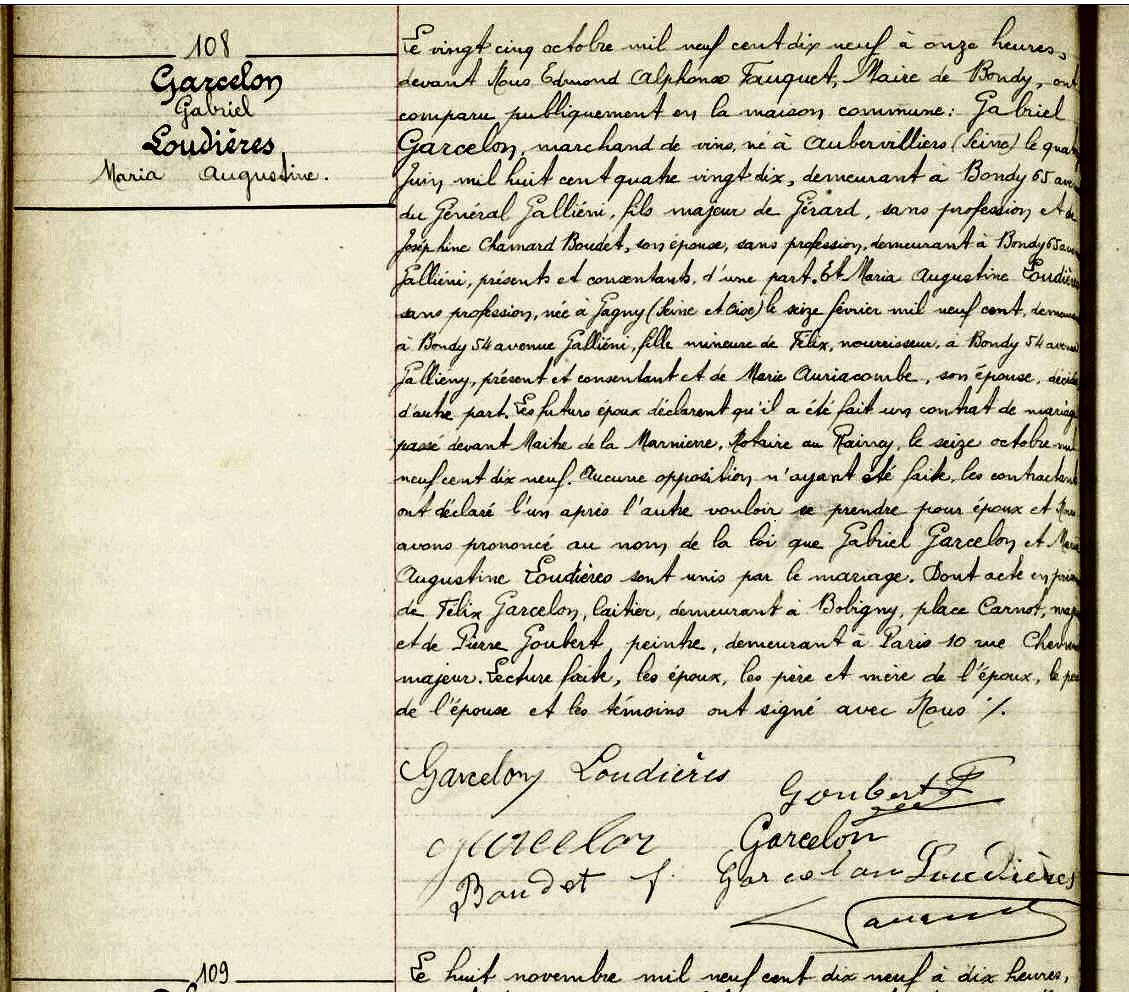 108
Garcelon
Gabriel
Loudières
Maria Augustine.
Le vingt cinq octobre mil neuf cent dix neuf à onze heures,
devant Nous Edmond Alphonse Fauquet, Maire de Bondy, ont
comparu publiquement en la maison commune: Gabriel
Garcelon, marchand de vins, né à Aubervilliers (Seine) le
Juin mil huit cent quatre vingt dix, demeurant à Bondy 65
du Général Galliéni, fils majeur de Gérard, sans profession et de
Joséphine Chamard Boudet, son épouse, sans profession, demeurant à Bondy 65
Galliéni, présents et consentants, d'une part. Et Maria Augustine
sans profession, née à Gagny (Seine et Oise) le seize février mil neuf cent,
à Bondy 54 avenue Galliéni, fille mineure de Félix, nourrisseur, à Bondy 54
Galliény, présent et consentant et de Marie Auriacombe, son épouse,
d'autre part. Les futurs époux déclarent qu'il a été fait un contrat de mariage
passé devant Maitre de la Marnierre, Notaire au Raincy, le seize octobre
neuf cent dix neuf. Aucune opposition n'ayant été faite, les
ont déclaré l'un après l'autre vouloir se prendre pour époux et
avons prononcé au nom de la loi que Gabriel Garcelon et
Augustine Loudières sont unis par le mariage. Dont acte en
de Félix Garcelon, laitier, demeurant à Bobigny, place Carnot,
et de Pierre Goubert, peintre, demeurant à Paris 10 rue
majeur. Lecture faite, les époux, les père et mère de l'époux, le
de l'épouse et les témoins ont signé avec Nous ./.
Garcelon Loudières
Goubert
Garcelon Garcelon
Boudet f. Garcelon Loudières
109
Le huit novembre mil neuf cent dix neuf à dix heures,